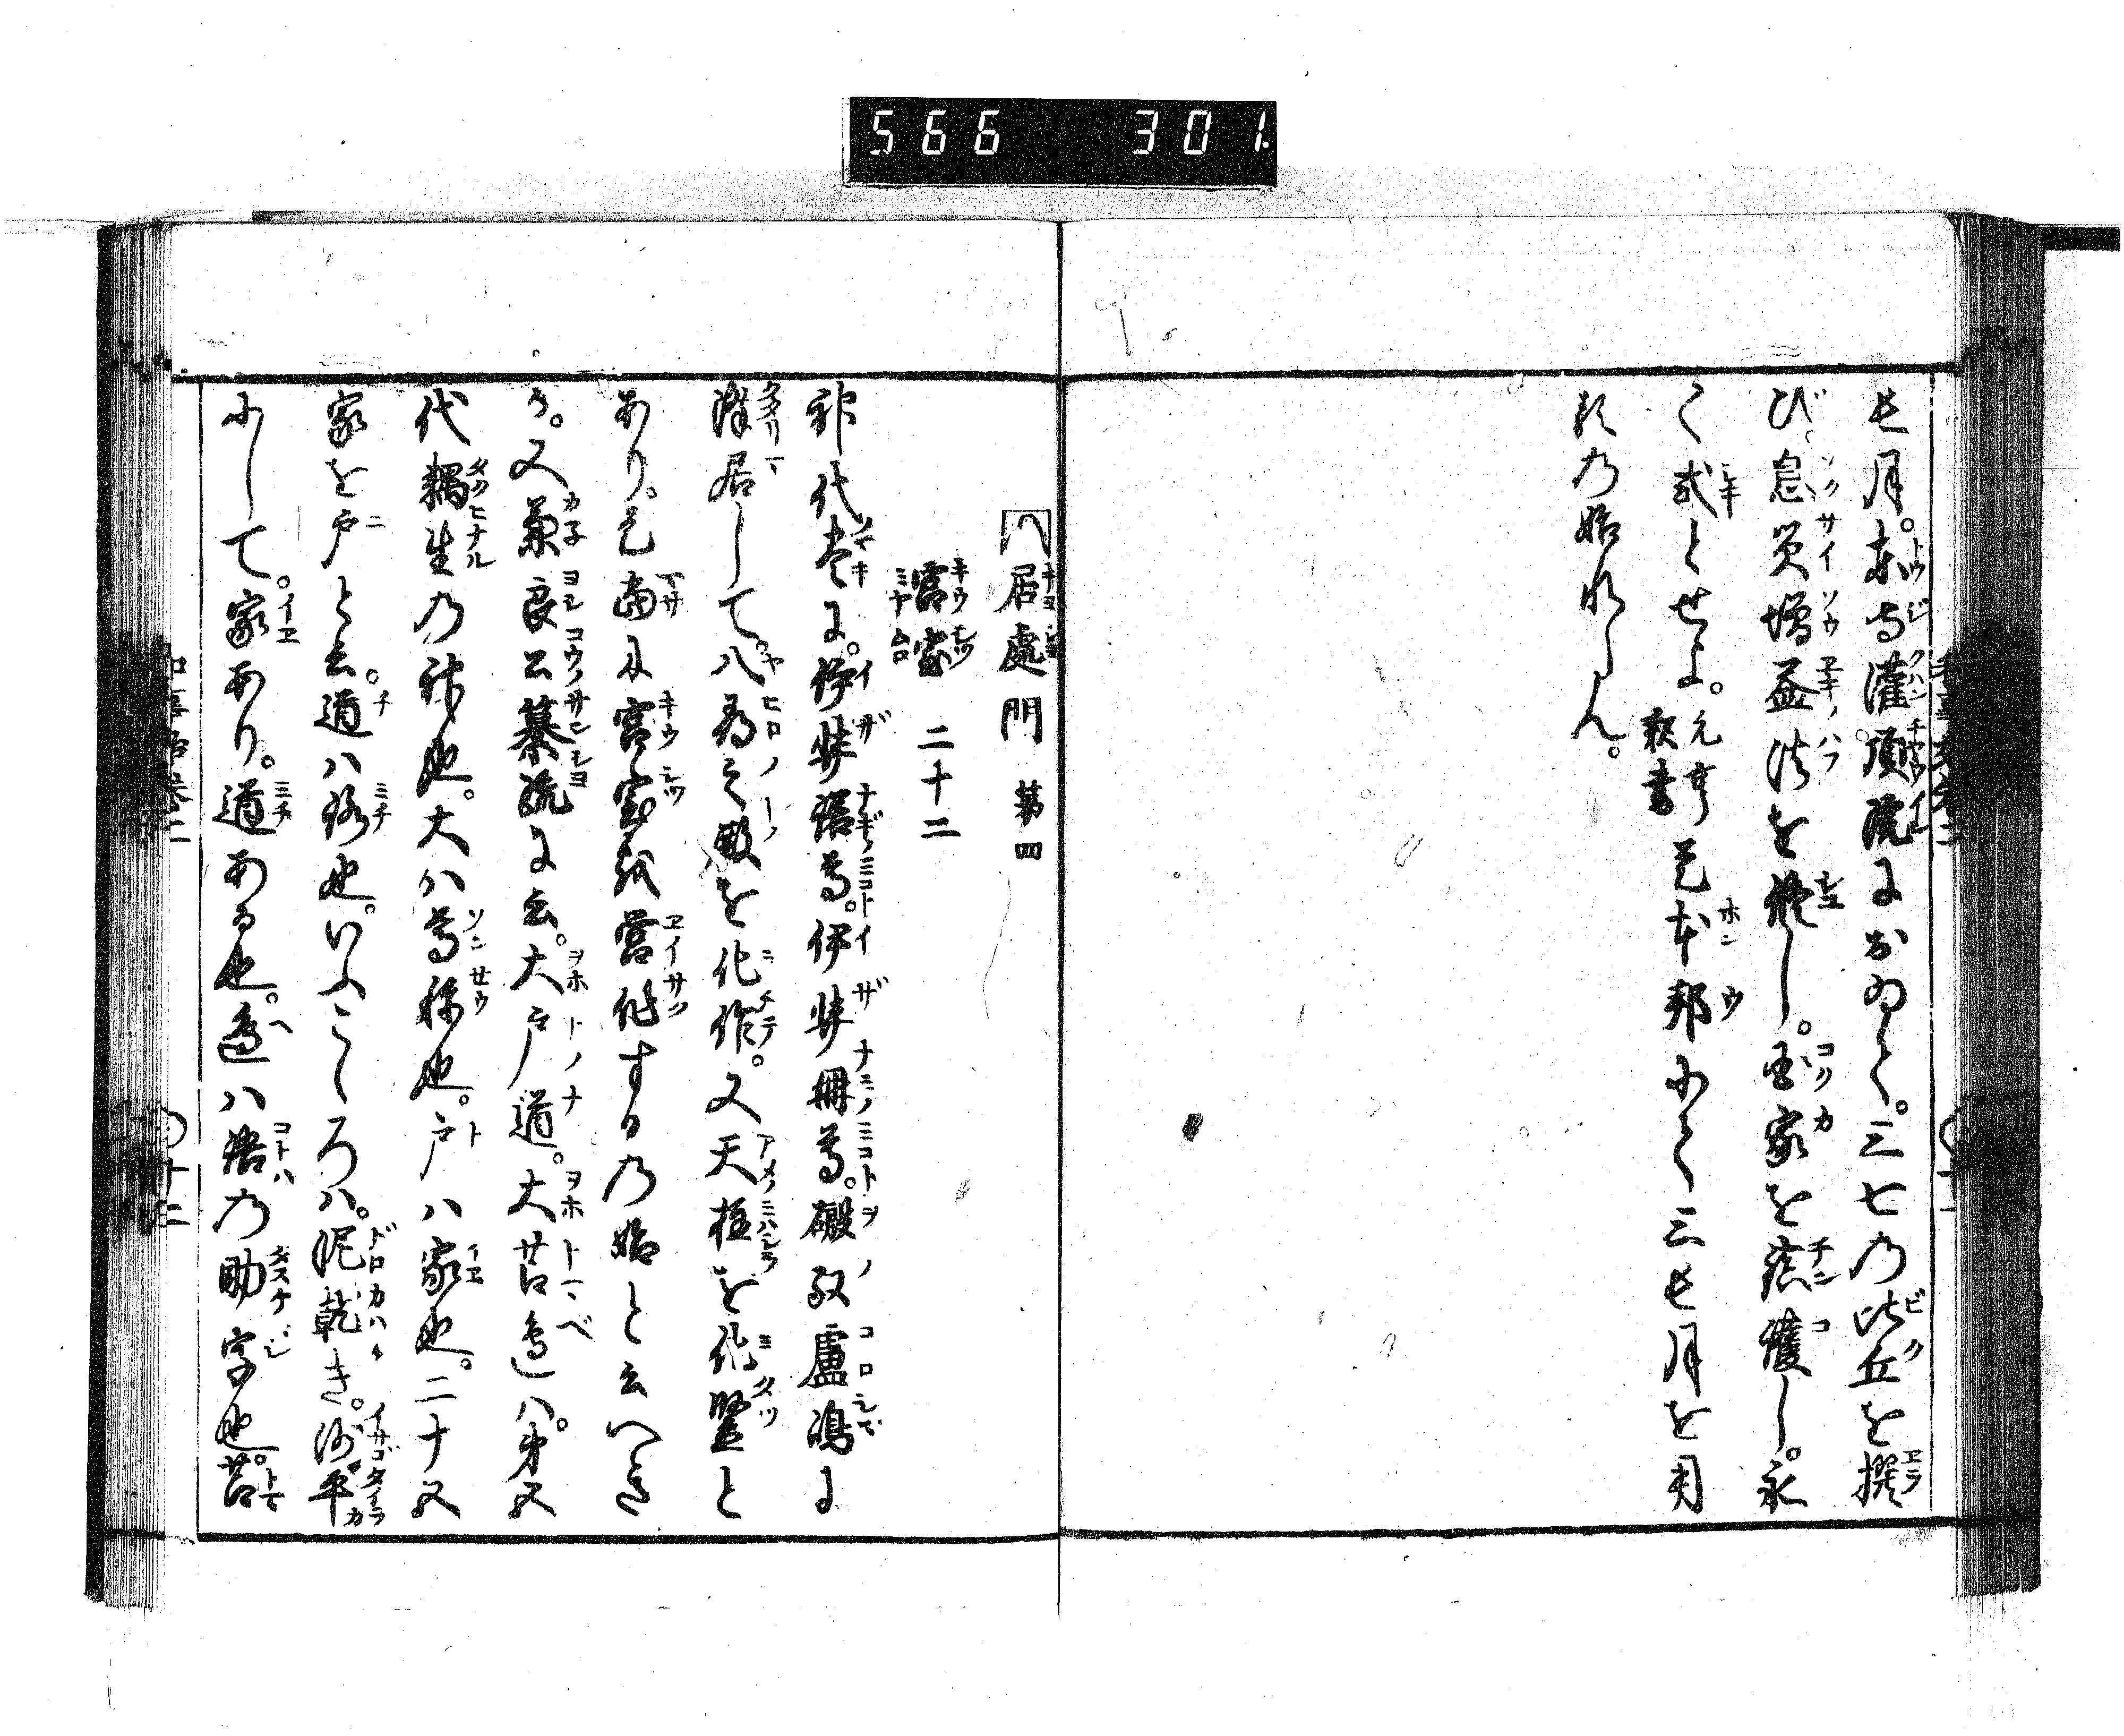 566 301.
長月。東寺灌頂院におゐて。三七の比丘を撰
び。息災増益法を修し。国家を鎮護し。永
く式とせよ。元亨釈書是本邦にて三長月を用
る の始ならん。
居處門 第四
宮室 二十二
神代巻に。伊弉諾尊。伊弉冊尊。磤馭盧嶋に
降居して。八尋之殿を化作。又天柱を化竪と
あり。是当に宮室を営作するの始と云へき
か。又兼良公纂疏に云。大戸道。大苫邉ハ。第五
代耦生の神也。大ハ尊称也。戸ハ家也。二十又
家を戸と云。道ハ路也。いふこころハ。泥乾き。沙平
にして。家あり。道ある也。邉ハ語の助字也。苫